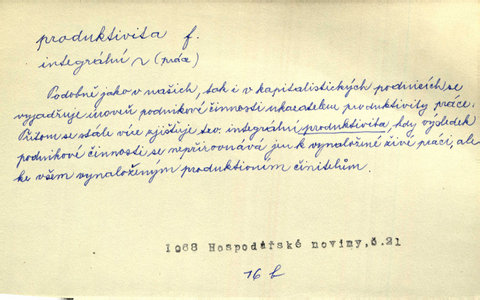 produktivita f.
integrální ~ (práce)
Podobně jako v našich, tak i v kapitalistických podnicích se
vyjadřuje úroveň podnikové činnosti ukazatelem produktivity práce.
Přitom se stále více zjišťuje tzv. integrální produktivita, kdy výsledek
podnikové činnosti se nepřirovnává jen k vynaložené živé práci, ale
ke všem vynaloženým produkčním činitelům.
1968 Hospodářské noviny,č.21
16 b